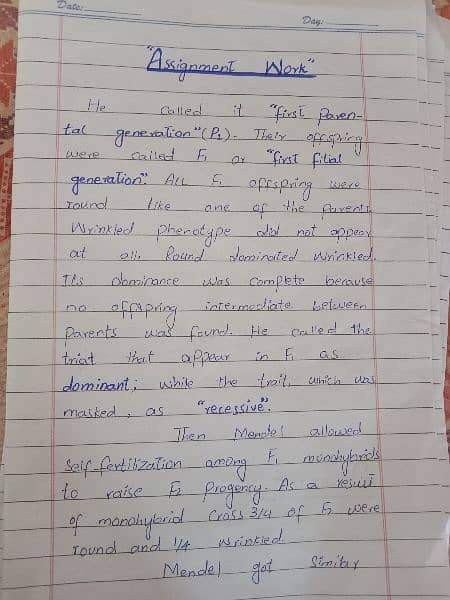 Date:
Day:
"Assignment Work"
He called it "first Paren-
tal generation" (P1). Their offspring
were called F1 or "first filial
generation". All F1 offspring were
round like one of the Parents.
Wrinkled phenotype did not appear
at all. Round dominated wrinkled.
Its dominance was complete because
no offspring intermediate between
Parents was found. He called the
triat that appear in F1 as
dominant; while the trait, which was
masked, as "recessive".
Then Mendel allowed
self-fertilization among F1 monohybrids
to raise F2 Progency. As a result
of monohybrid cross 3/4 of F2 were
round and 1/4 wrinkled.
Mendel got Similar